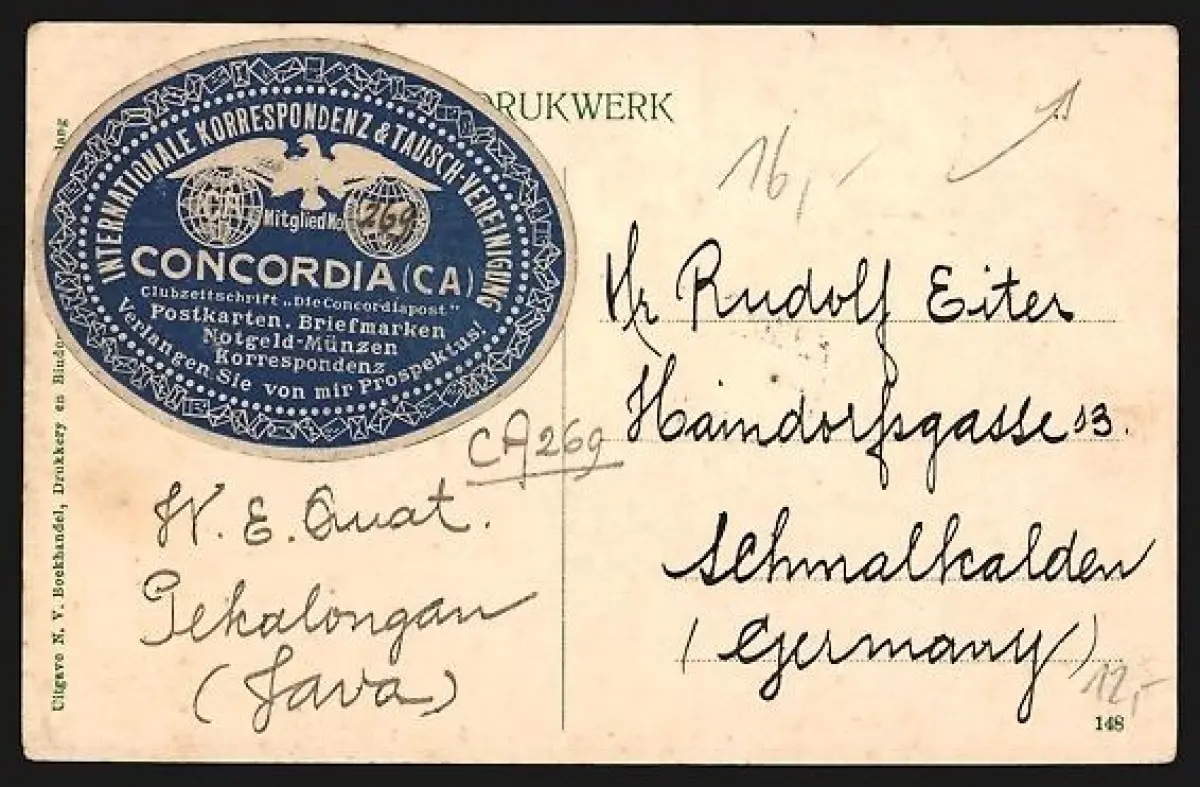 DRUKWERK
INTERNATIONALE KORRESPONDENZ & TAUSCH-VEREINIGUNG
CA
Mitglied No 269
CONCORDIA (CA)
Clubzeitschrift „Die Concordiapost"
Postkarten. Briefmarken
Notgeld-Münzen
Korrespondenz
Verlangen Sie von mir Prospektus!
CA 269
W. E. Quat.
Pekalongan
(Java)
16,-
Hr Rudolf Eiter
Haindorfsgasse 13.
Schmalkalden
(Germany)
12,-
148
Uitgave N. V. Boekhandel, Drukkery en Bindor
lang